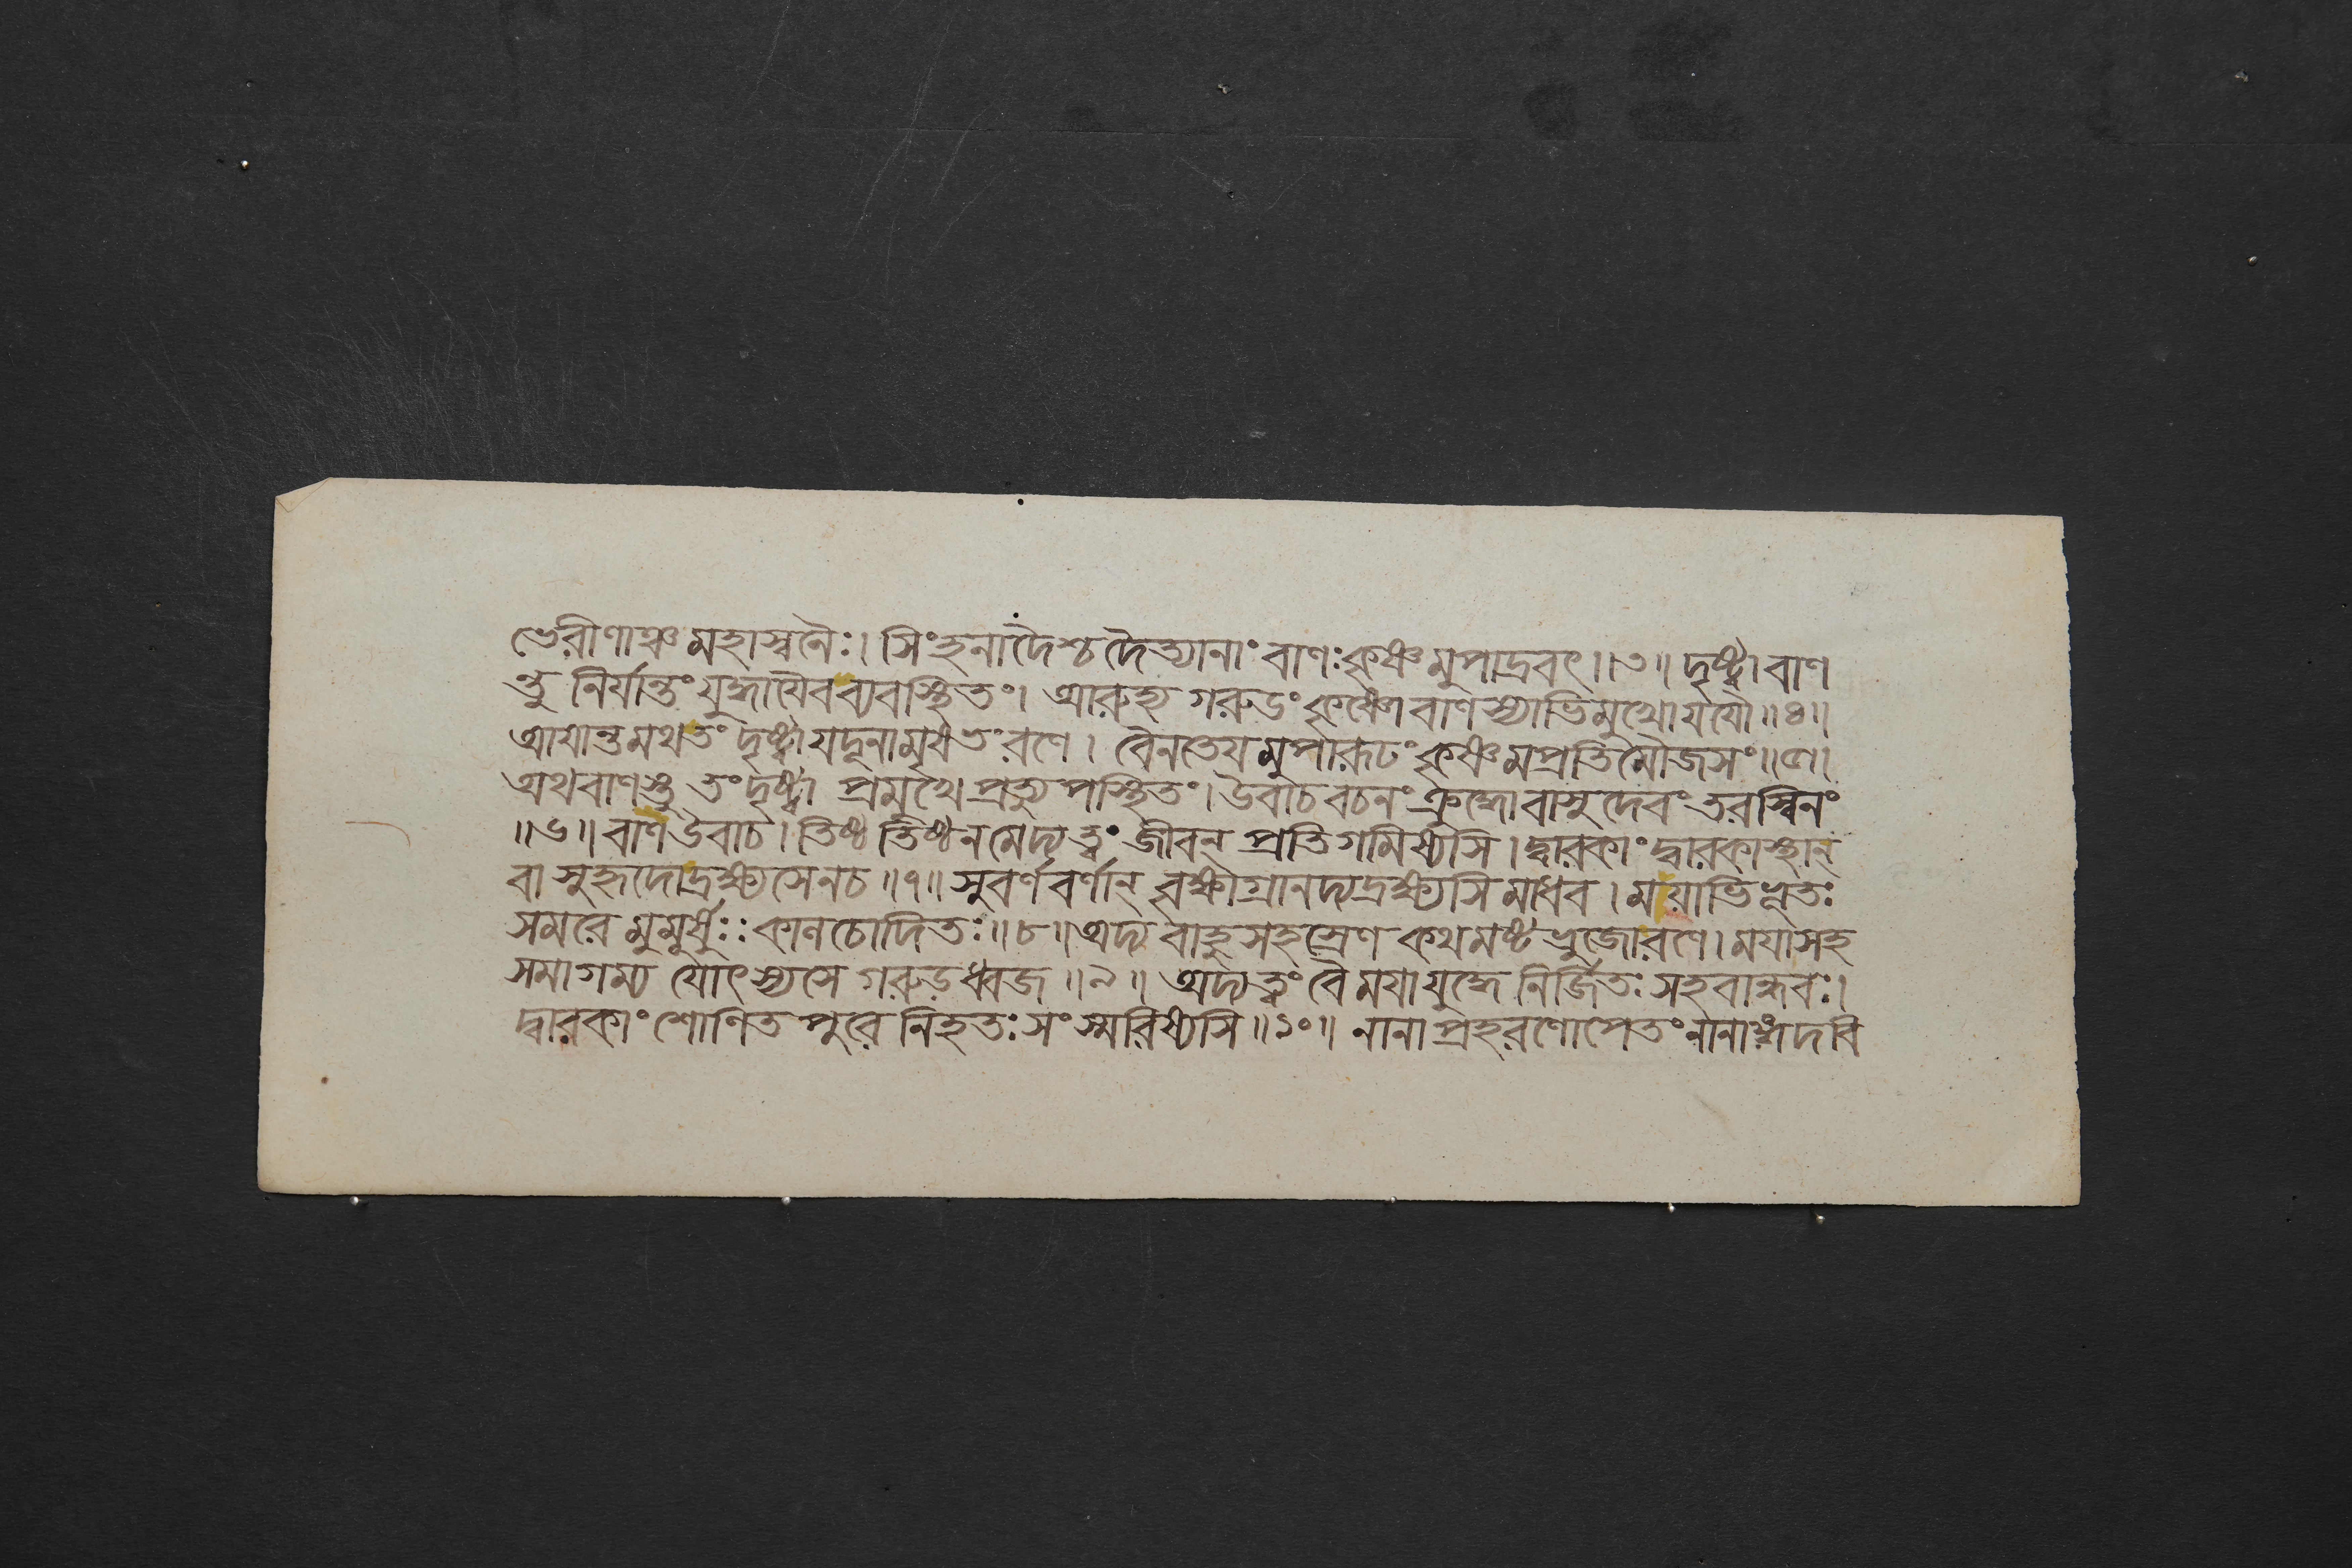 ভেরীণাঞ্চ মহাস্বনৈঃ। সিংহনাদৈশ্চ দৈত্যানাং বাণঃ কৃষ্ণমুপাদ্রবৎ॥৩॥ দৃষ্ট্বা বাণ
ন্তু নির্যান্তং যুদ্ধাযৈব ব্যবস্থিতং। আরুহ্য গরুডং কৃষ্ণো বাণস্যাভিমুখো যযৌ॥৪॥
আযান্তমথ তং দৃষ্ট্বা যদূনামৃষভং রণে। বৈনতেযমুপারূঢং কৃষ্ণমপ্রতিমৌজসং॥৫॥
অথ বাণস্তু তং দৃষ্ট্বা প্রমুখে প্রত্যুপস্থিতং। উবাচ বচনং ক্রুদ্ধো বাসুদেবং তরস্বিনং
॥৬॥ বাণ উবাচ। তিষ্ঠ তিষ্ঠ ন মেদ্য ত্বং জীবন্ প্রতিগমিষ্যসি। দ্বারকাং দ্বারকাস্থান্
বা সুহৃদো দ্রক্ষ্যসে ন চ॥৭॥ সুবর্ণবর্ণান্ বৃক্ষাগ্রানদ্য দ্রক্ষ্যসি মাধব। মযাভিভূতঃ
সমরে মুমূর্ষুঃ: কালচোদিতঃ॥৮॥ অদ্য বাহুসহস্রেণ কথমষ্টভুজো রণে। মযা সহ
সমাগম্য যোৎস্যসে গরুড়ধ্বজ॥৯॥ অদ্য ত্বং বৈ মযা যুদ্ধে নির্জিতঃ সহবান্ধবঃ।
দ্বারকাং শোণিতপুরে নিহতঃ সংস্মরিষ্যসি॥১০॥ নানাপ্রহরণোপেতং নানাঙ্গদবি